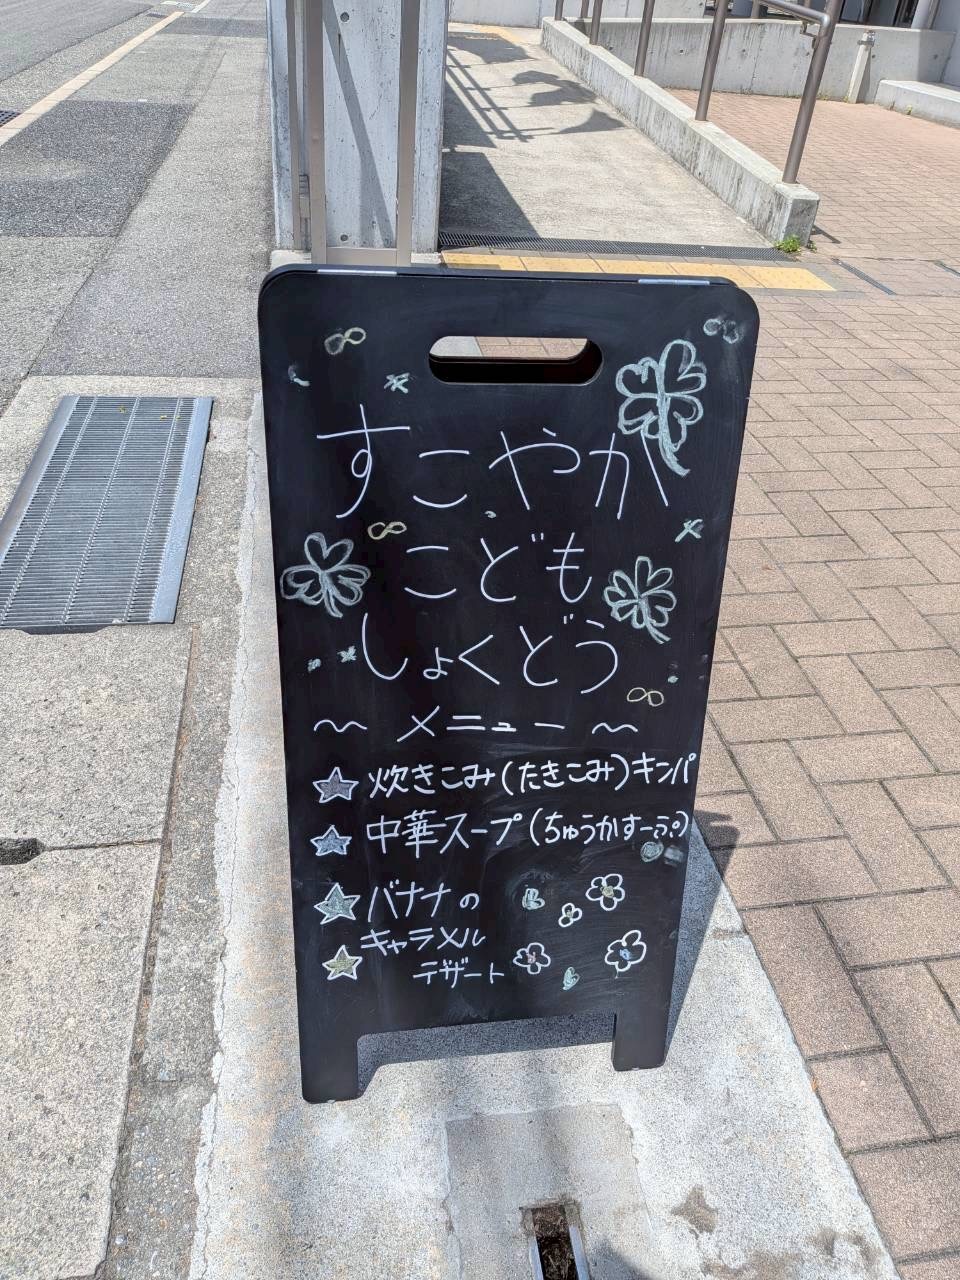 すこやか
こども
しょくどう
～ メニュー ～
☆ 炊きこみ(たきこみ)キンパ
☆ 中華スープ(ちゅうかすーぷ)
☆ バナナの
☆ キャラメル
デザート